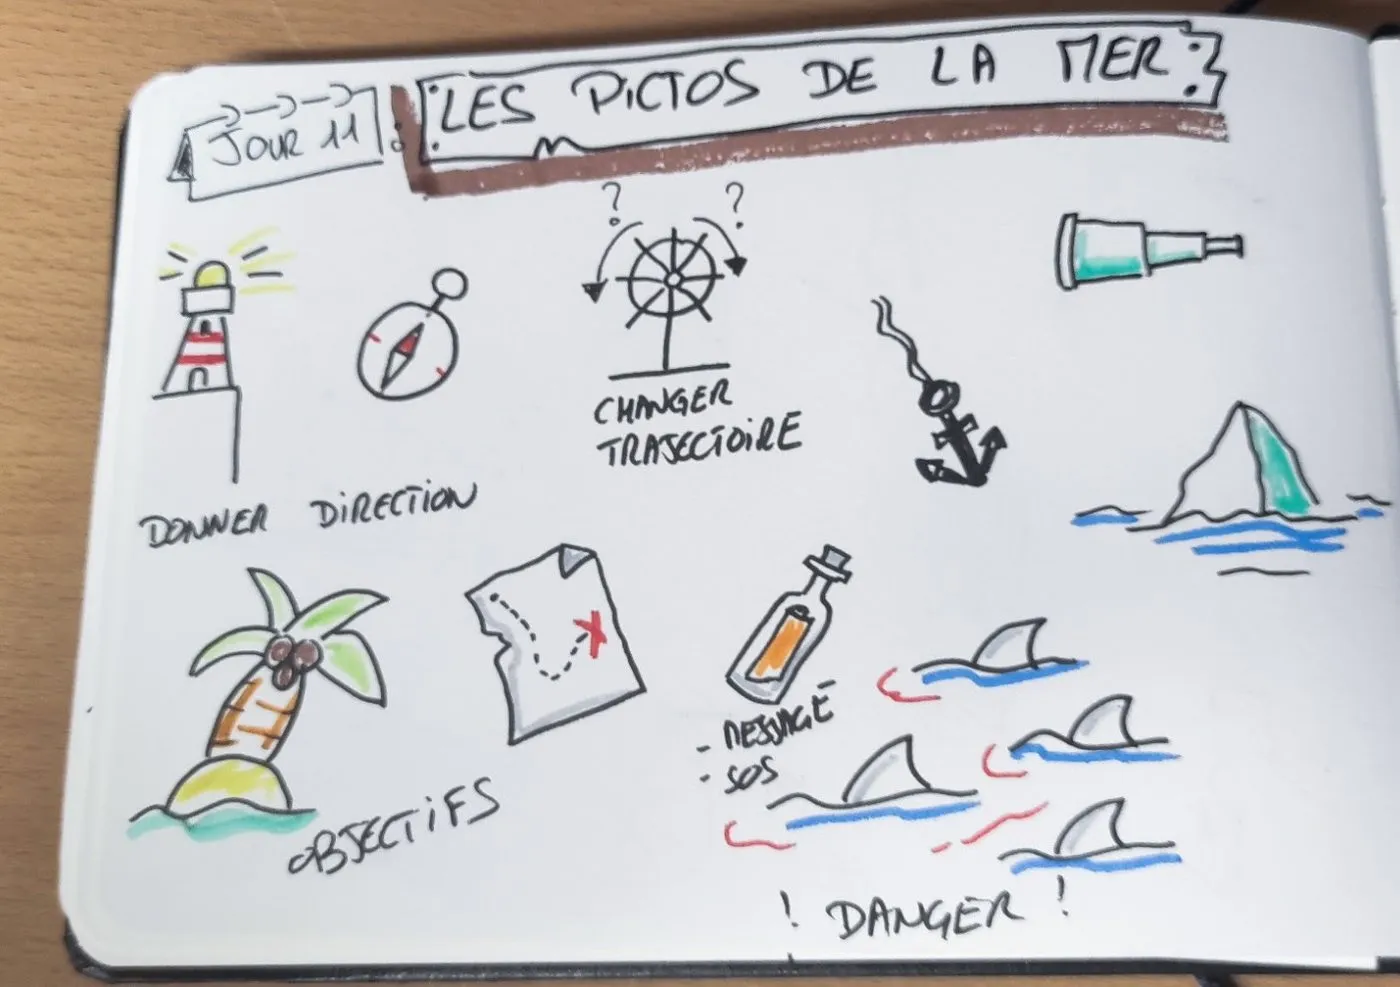 JOUR 11 : LES PICTOS DE LA MER
? ?
CHANGER
TRAJECTOIRE
DONNER DIRECTION
- MESSAGE
- SOS
OBJECTIFS
! DANGER !